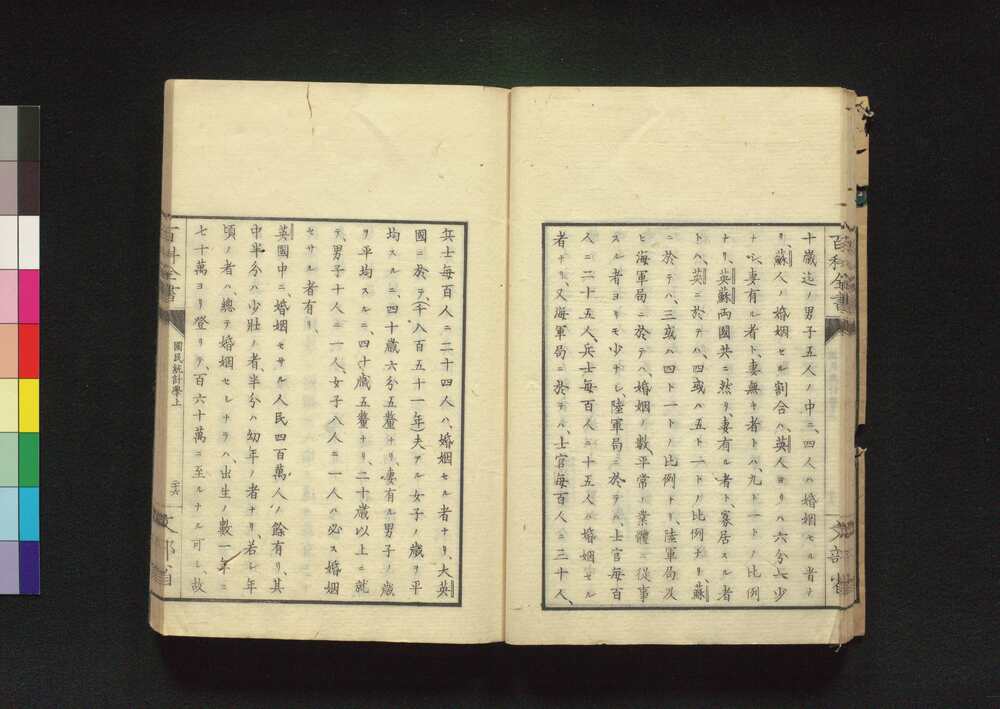 十歳迄ノ男子五人ノ中ニ、四人ハ婚姻セル者ナ
リ、蘇人ノ婚姻セル割合ハ、英人ヨリハ六分一少
ナシ、妻有ル者ト、妻無キ者トハ、九ト一トノ比例
ナリ、英蘇両國共ニ然リ、妻有ル者ト、寡居スル者
トハ、英ニ於テハ、四或ハ五ト一トノ比例ナリ、蘇
ニ於テハ、三或ハ四ト一トノ比例トリ、陸軍局及
ヒ海軍局ニ於テハ、婚姻ノ數、平常ノ業體ニ從事
スル者ヨリモ少ナシ、陸軍局ニ於テハ、士官毎百
人ニ二十五人、兵士毎百人ニ十五人ハ婚姻セル
者ナリ、又海軍局ニ於テハ、士官毎百人ニ三十人、
百科全書
文部省
兵士毎百人ニ二十四人ハ、婚姻セル者ナリ、大英
國ニ於テ、(千八百五十一年)夫アル女子ノ歳ヲ平
均スルニ、四十歳六分五釐ナリ、妻有ル男子ノ歳
ヲ平均スルニ、四十歳五釐ナリ、二十歳以上ニ就
テ、男子十人ニ一人、女子八人ニ一人ハ必ス婚姻
セサル者有リ、
英國中ニ婚姻セサル人民四百萬人ノ餘有リ、其
中半分ハ少壯ノ者、半分ハ幼年ノ者ナリ、若シ年
頃ノ者ハ、總テ婚姻セシナラハ、出生ノ數一年ニ
七十萬ヨリ登リテ、百六十萬ニ至ルナル可シ、故
百科全書
國民統計學上
二十六
文部省